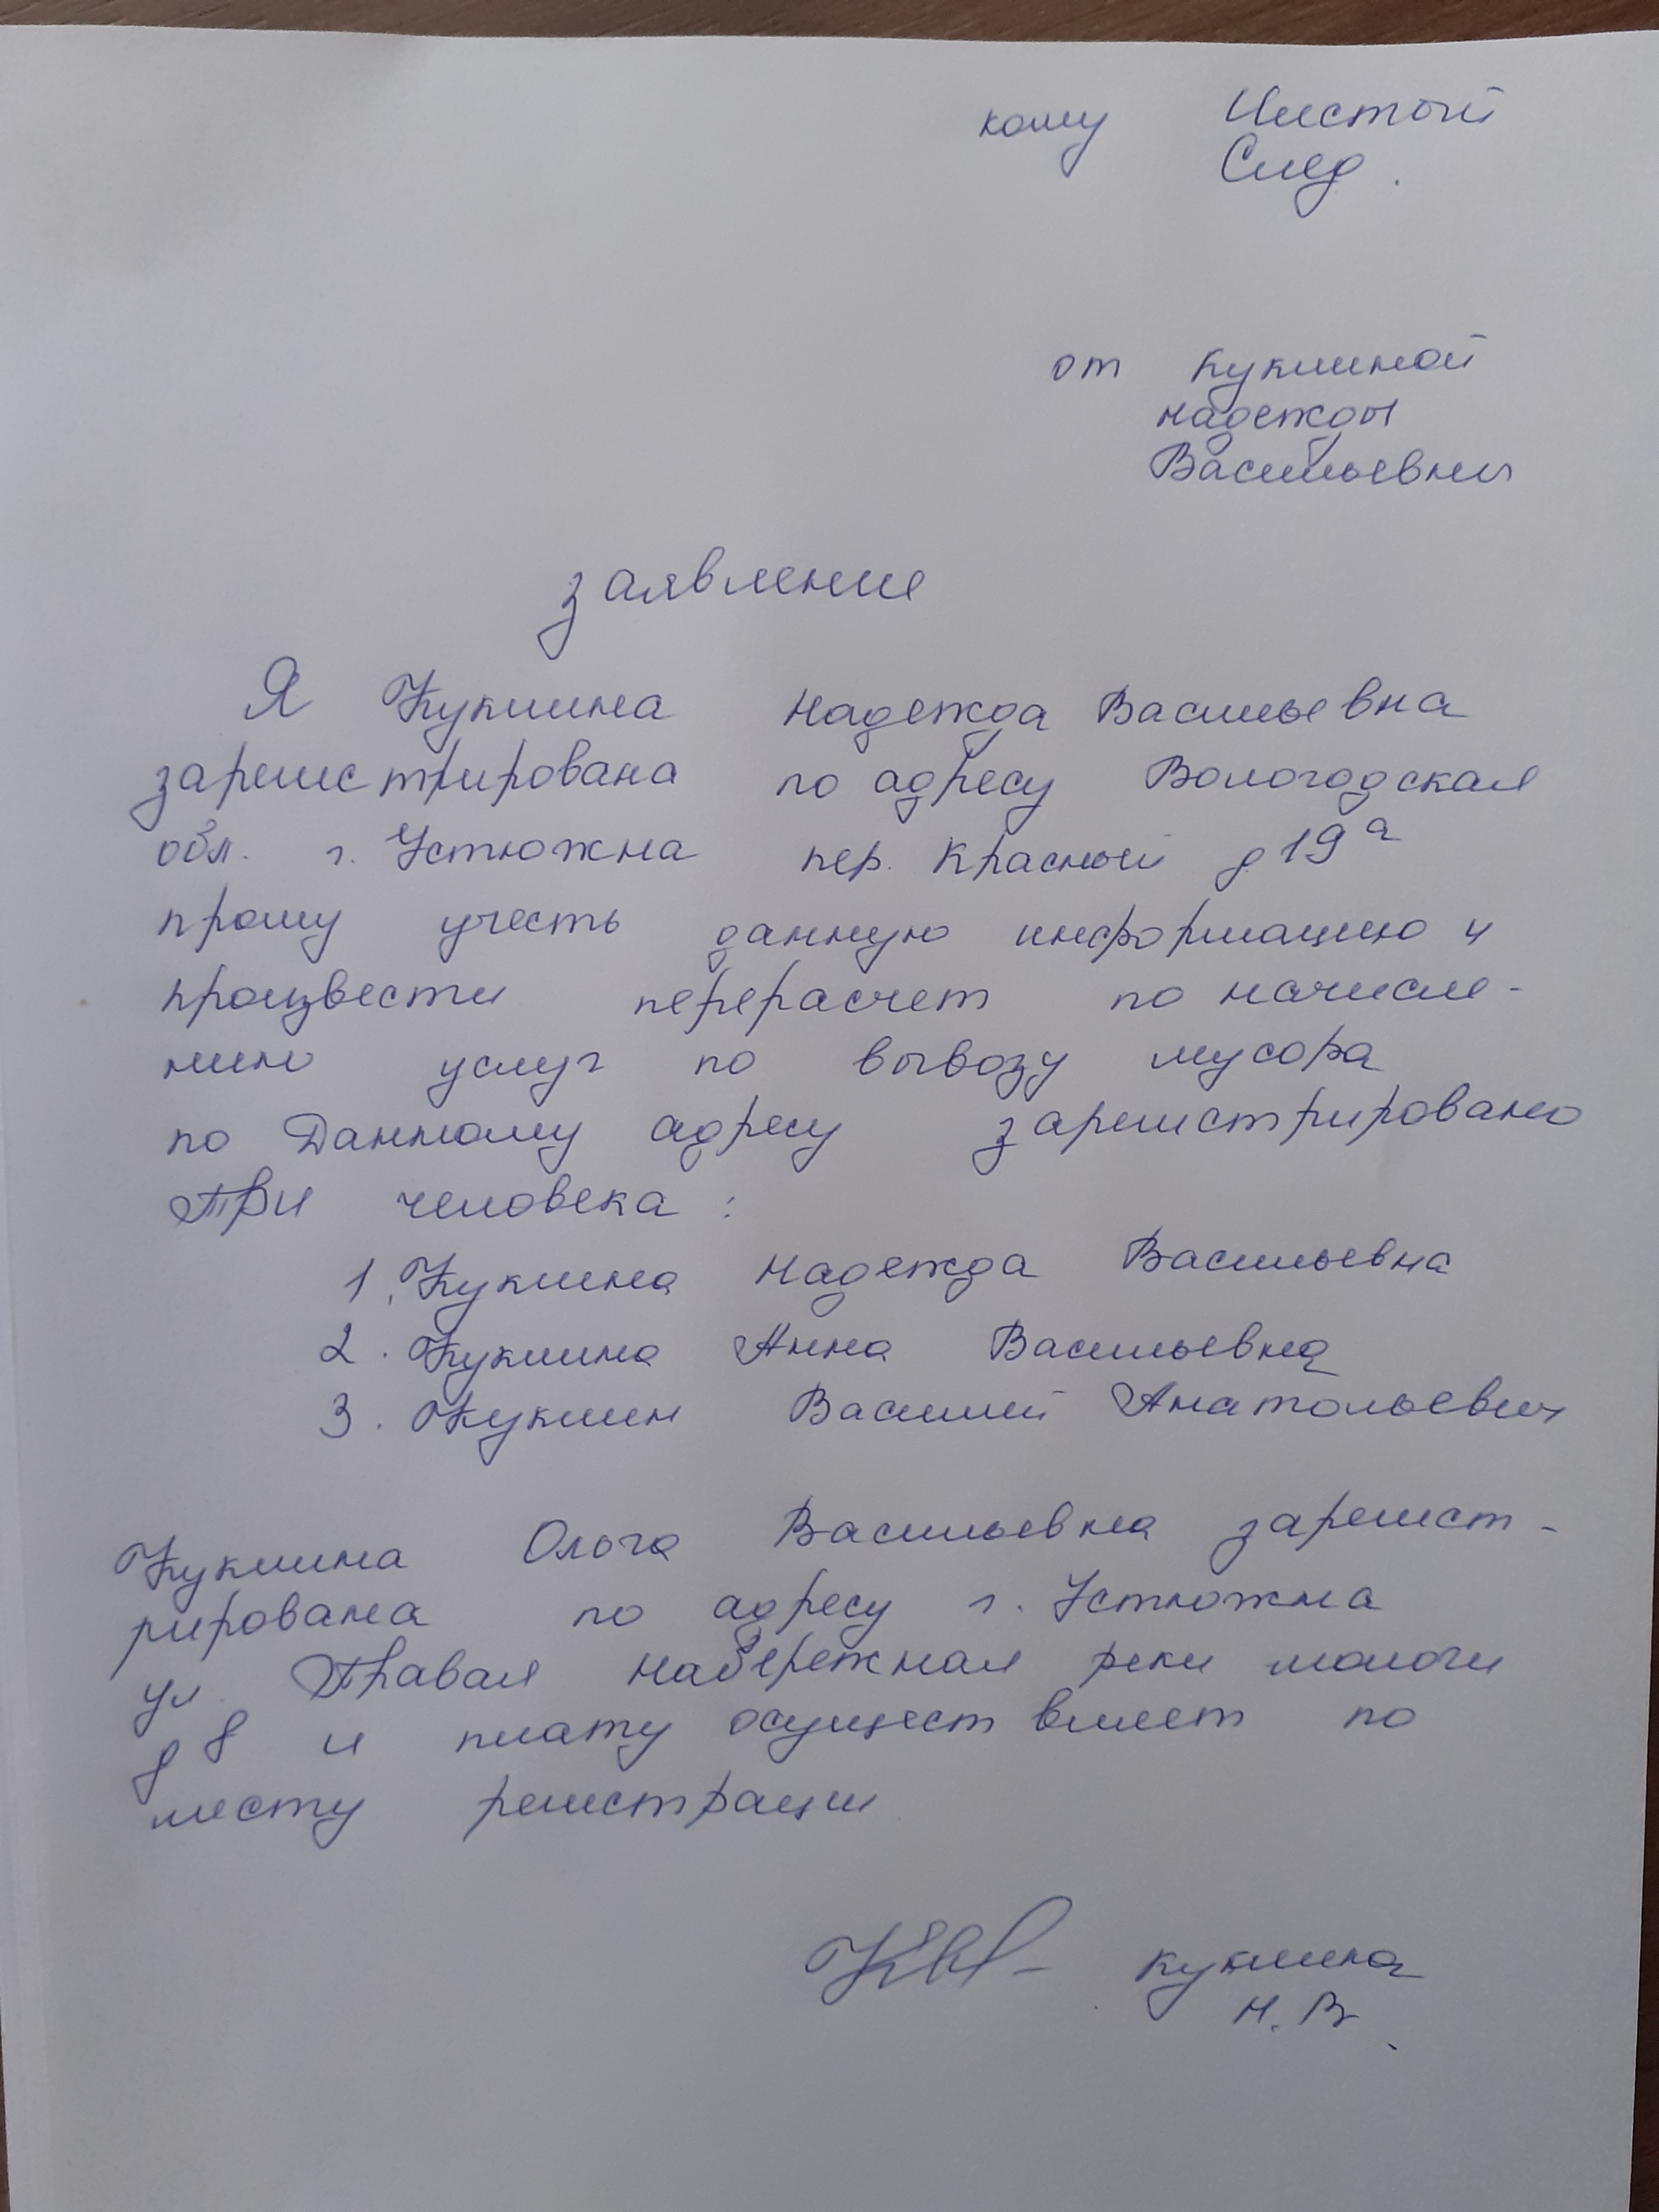 кому Чистый
След.
от Кукшиной
Надежды
Васильевны
заявление
Я Кукшина Надежда Васильевна
зарегистрирована по адресу Вологодская
обл. г. Устюжна пер. Красный д 19 а
прошу учесть данную информацию и
произвести перерасчет по начисле-
нию услуг по вывозу мусора
по Данному адресу зарегистрировано
Три человека :
1. Кукшина Надежда Васильевна
2. Кукшина Анна Васильевна
3. Кукшин Василий Анатольевич
Кукшина Ольга Васильевна зарегист-
рирована по адресу г. Устюжна
ул. Правая Набережная реки мологи
д 8 и плату осуществляет по
месту регистрации
Кукшина
Н. В.